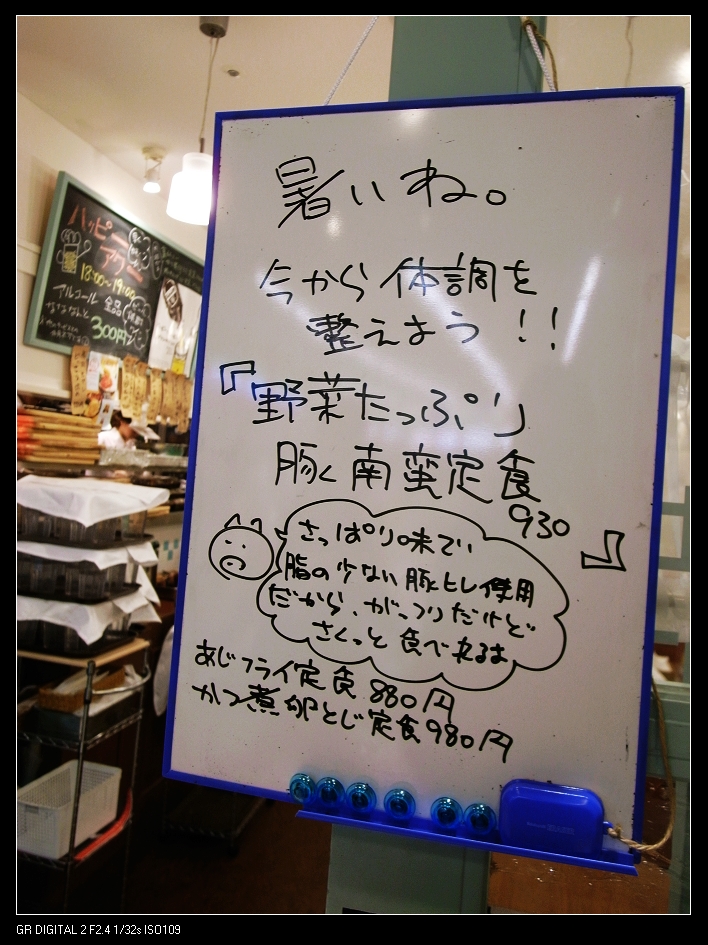 暑いね。
今から体調を
整えよう!!
『野菜たっぷり
豚く南蛮定食
930
』
さっぱり味で
脂の少ない豚ヒレ使用
だから、がっつりだけど
さくっと食べれるよ
あじフライ定食 880円
かつ煮卵とじ定食 980円
ハッピー
アワー
18:00〜19:00
アルコール 全品
なななんと
300円
GR DIGITAL 2 F2.4 1/32s ISO109